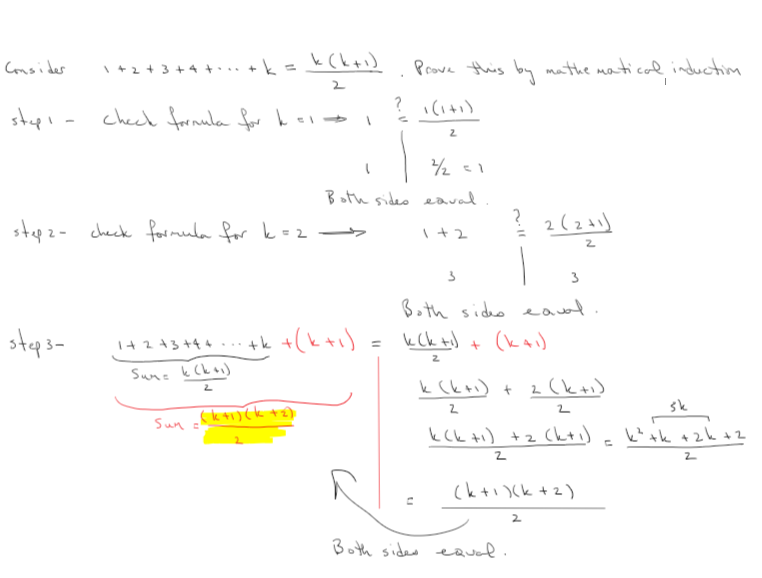 Consider 1 + 2 + 3 + 4 + ... + k = k(k+1)/2 . Prove this by mathematical induction
step 1 - check formula for k = 1 → 1 ?= 1(1+1)/2
1 | 2/2 = 1
Both sides equal.
step 2 - check formula for k = 2 → 1 + 2 ?= 2(2+1)/2
3 | 3
Both sides equal.
step 3 - 1 + 2 + 3 + 4 + ... + k + (k+1) = k(k+1)/2 + (k+1)
Sum = k(k+1)/2
k(k+1)/2 + 2(k+1)/2
Sum = (k+1)(k+2)/2
3k
k(k+1) + 2(k+1)/2 = k² + k + 2k + 2/2
= (k+1)(k+2)/2
Both sides equal.